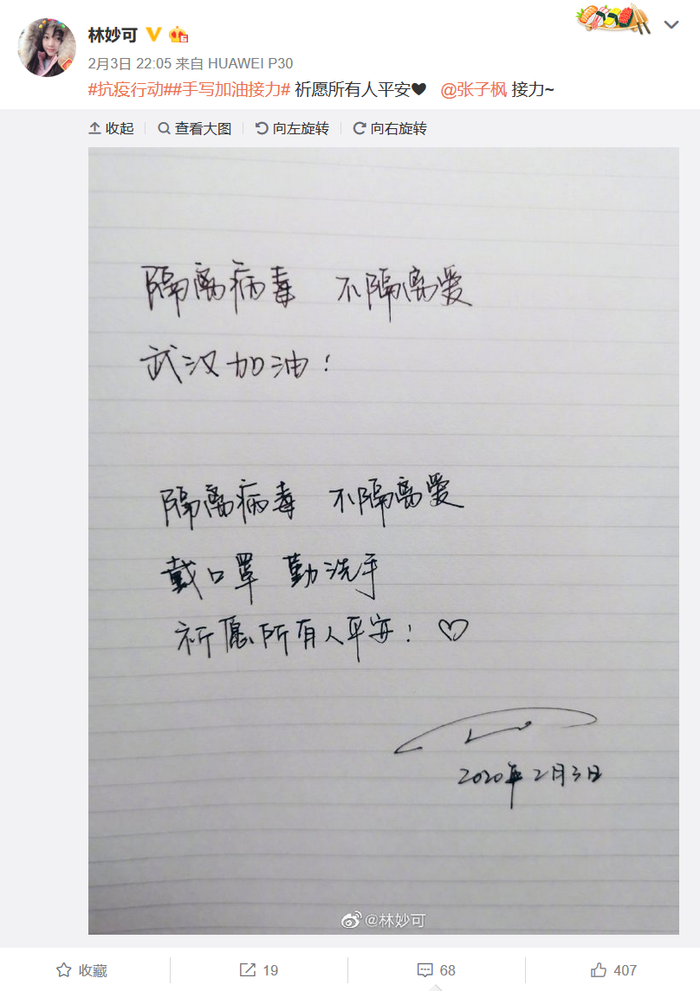 林妙可
2月3日 22:05 来自 HUAWEI P30
#抗疫行动##手写加油接力# 祈愿所有人平安♥ @张子枫 接力~
收起 查看大图 向左旋转 向右旋转
隔离病毒 不隔离爱
武汉加油！
隔离病毒 不隔离爱
戴口罩 勤洗手
祈愿所有人平安！♡
2020年2月3日
@林妙可
收藏 19 68 407